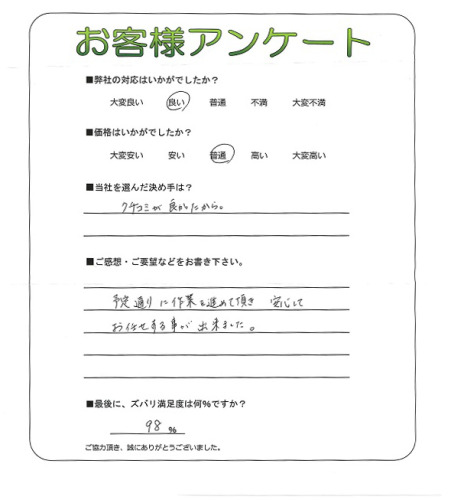 お客様アンケート
■弊社の対応はいかがでしたか？
大変良い 良い 普通 不満 大変不満
■価格はいかがでしたか？
大変安い 安い 普通 高い 大変高い
■当社を選んだ決め手は？
クチコミが良かたから。
■ご感想・ご要望などをお書き下さい。
予定通りに作業を進めて頂き 安心して
お任せする事が出来ました。
■最後に、ズバリ満足度は何％ですか？
98 %
ご協力頂き、誠にありがとうございました。